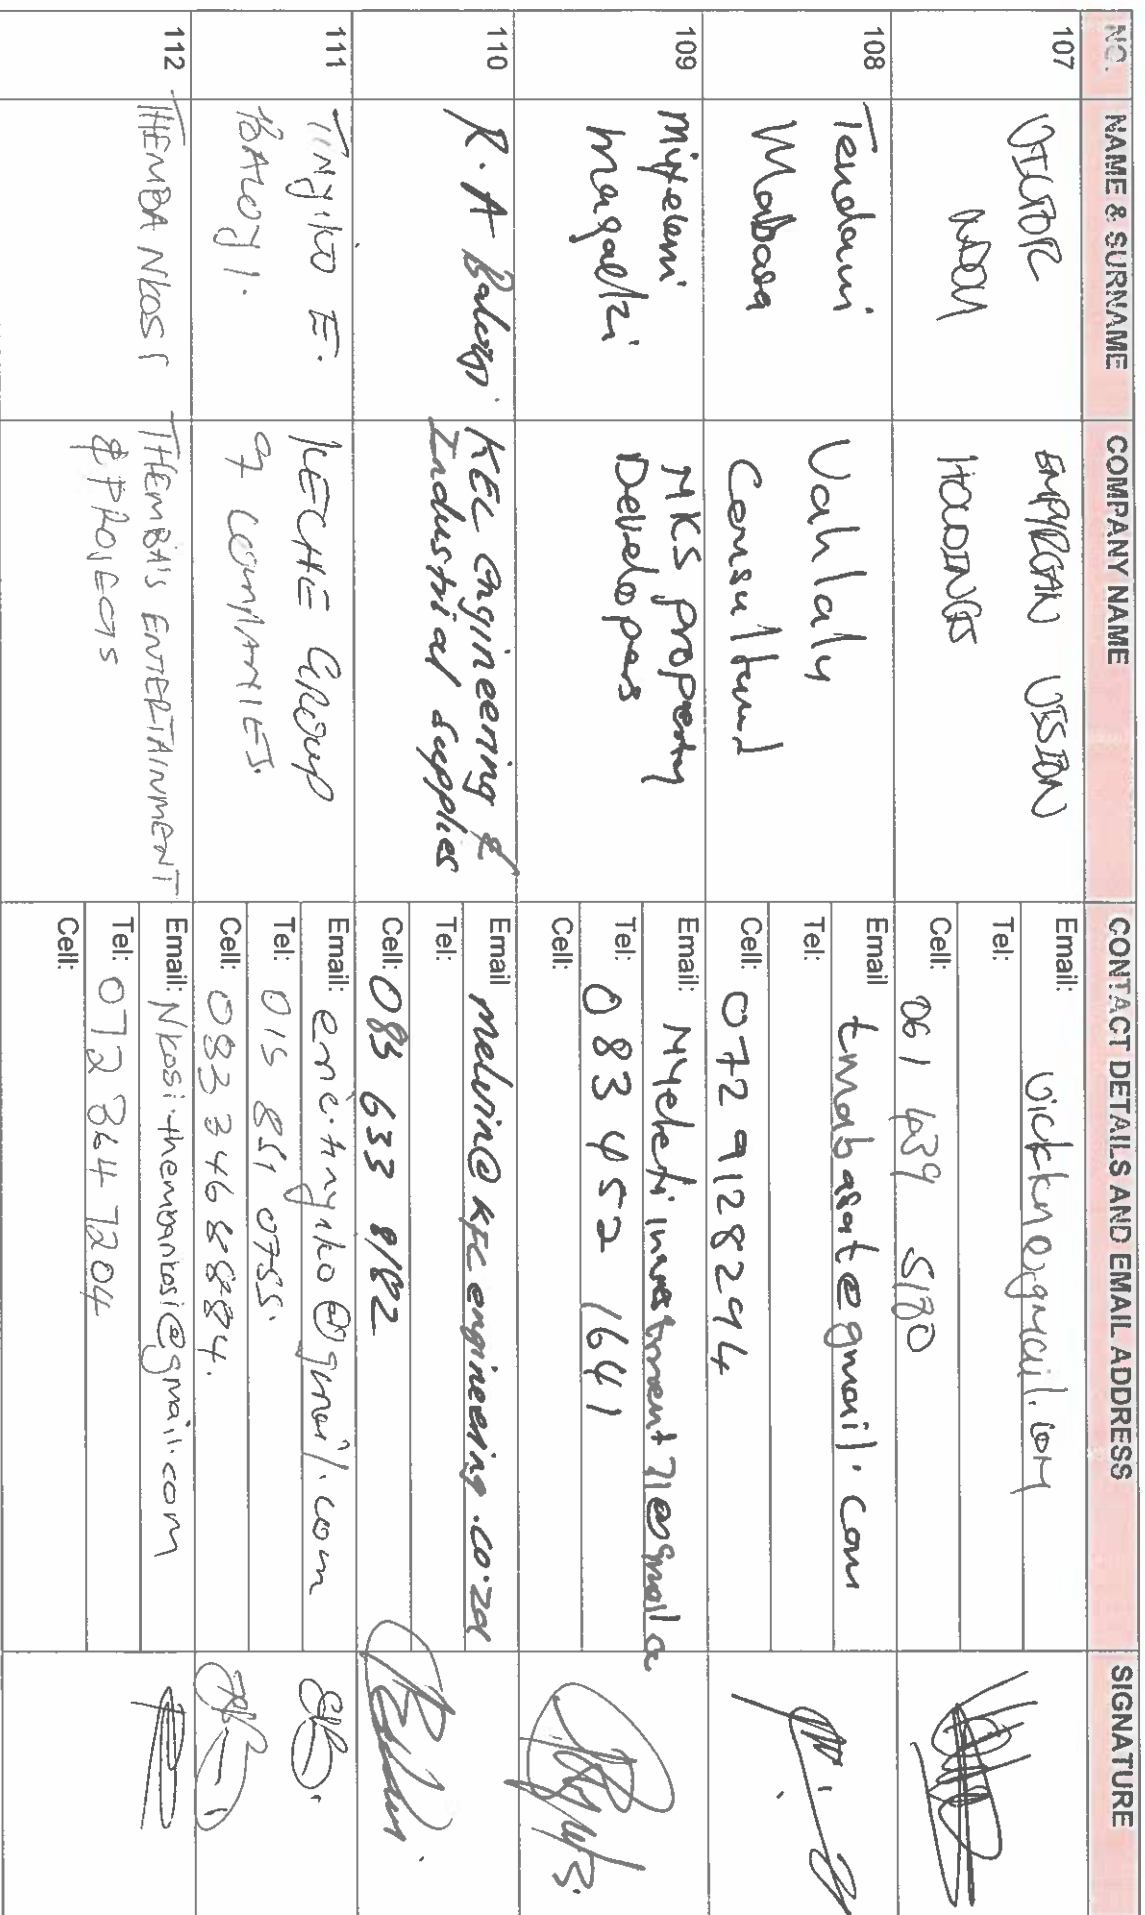 NO. NAME & SURNAME COMPANY NAME CONTACT DETAILS AND EMAIL ADDRESS SIGNATURE
107 VICTOR EMPYREAN VISION HOLDINGS
Email: vicktkne@gmail.com
Tel:
Cell: 061 439 5180
108 Tendani Mabasa Vahlalu
Email tmabasate@gmail.com
Tel:
Cell: 072 9128294
109 Miyelani Magalki MKS property Develepers
Email Myeleti investment 71@gmail.c
Tel: 083 452 1641
Cell:
110 R. A Baloyi KEC Engineering & Industrial supplies
Email melvin@kec engineering.co.za
Tel:
Cell: 083 633 8182
111 Tinyiko E. BALOYI. KECHE GROUP OF COMPANIES.
Email: eric.tinyiko@gmail.com
Tel: 015 851 0755.
Cell: 083 346 8884.
112 THEMBA NKOSI THEMBA'S ENTERTAINMENT & PROJECTS
Email: Nkosi.thembankosi@gmail.com
Tel: 072 364 7204
Cell: